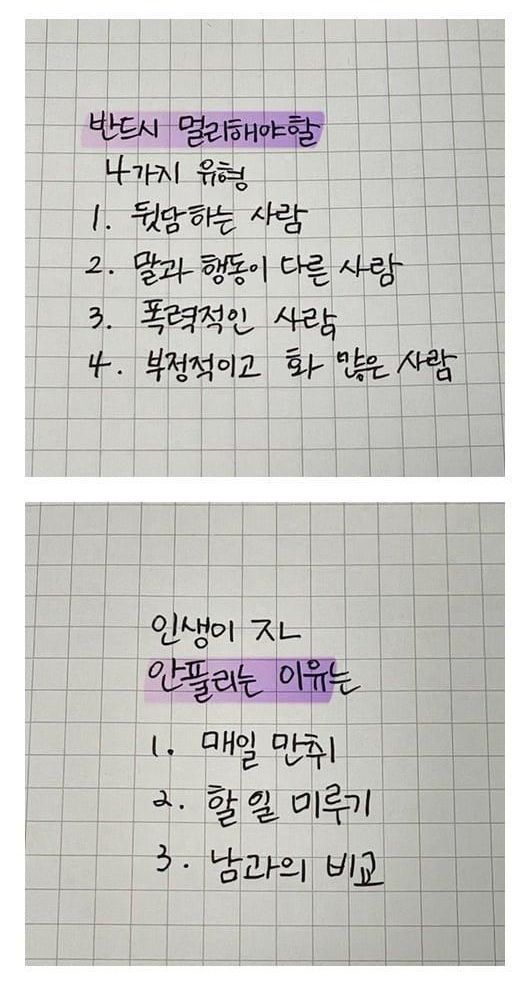 반드시 멀리해야할
4가지 유형
1. 뒷담하는 사람
2. 말과 행동이 다른 사람
3. 폭력적인 사람
4. 부정적이고 화 많은 사람
인생이 ㅈㄴ
안풀리는 이유는
1. 매일 만취
2. 할 일 미루기
3. 남과의 비교